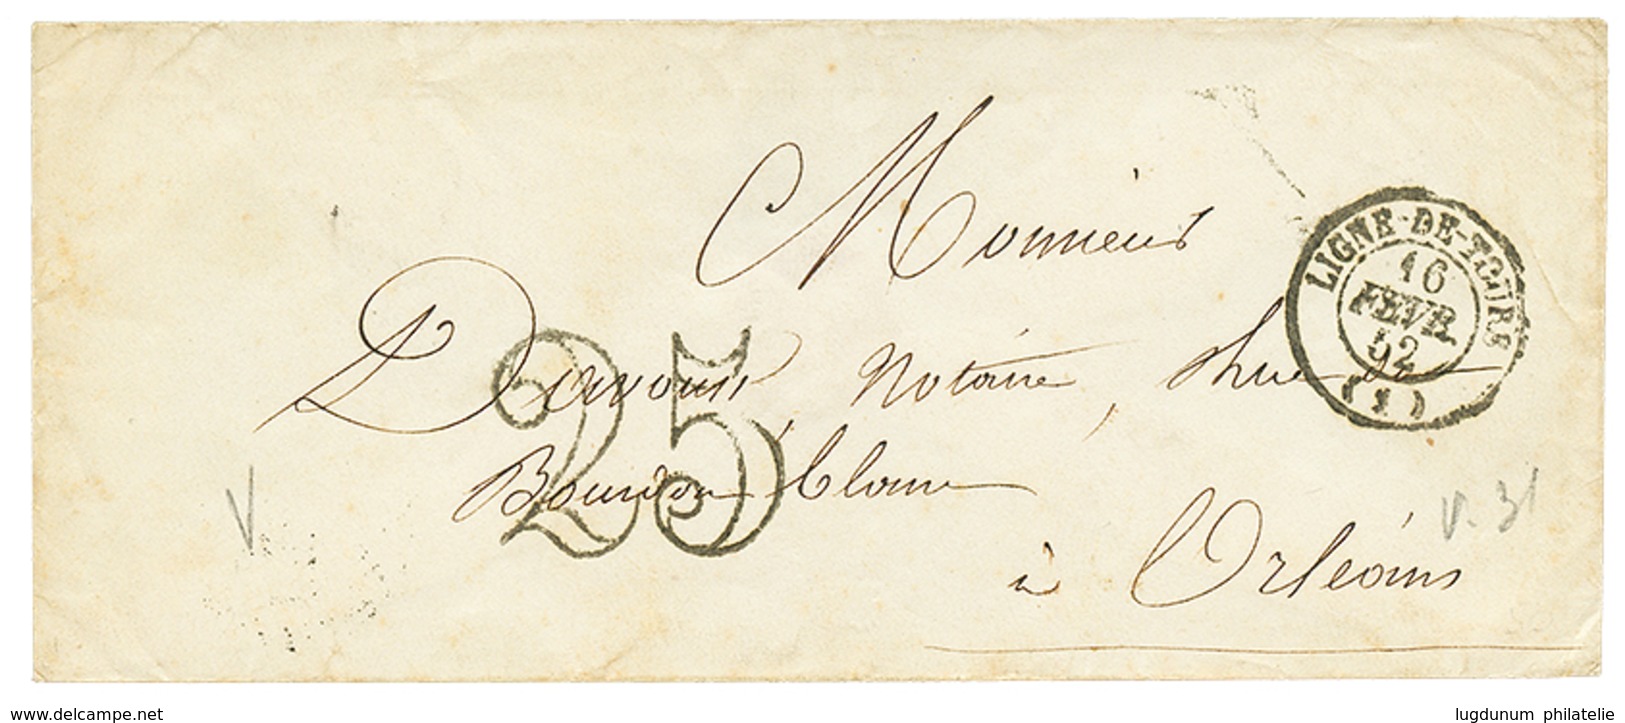 Monsieur
Notaire, Rue
Bourdon blanc
à Orléans
25
LIGNE-DE-TOURS
16
FEVR.
52
(1)
V
V. 31
www.delcampe.net
lugdunum philatelie